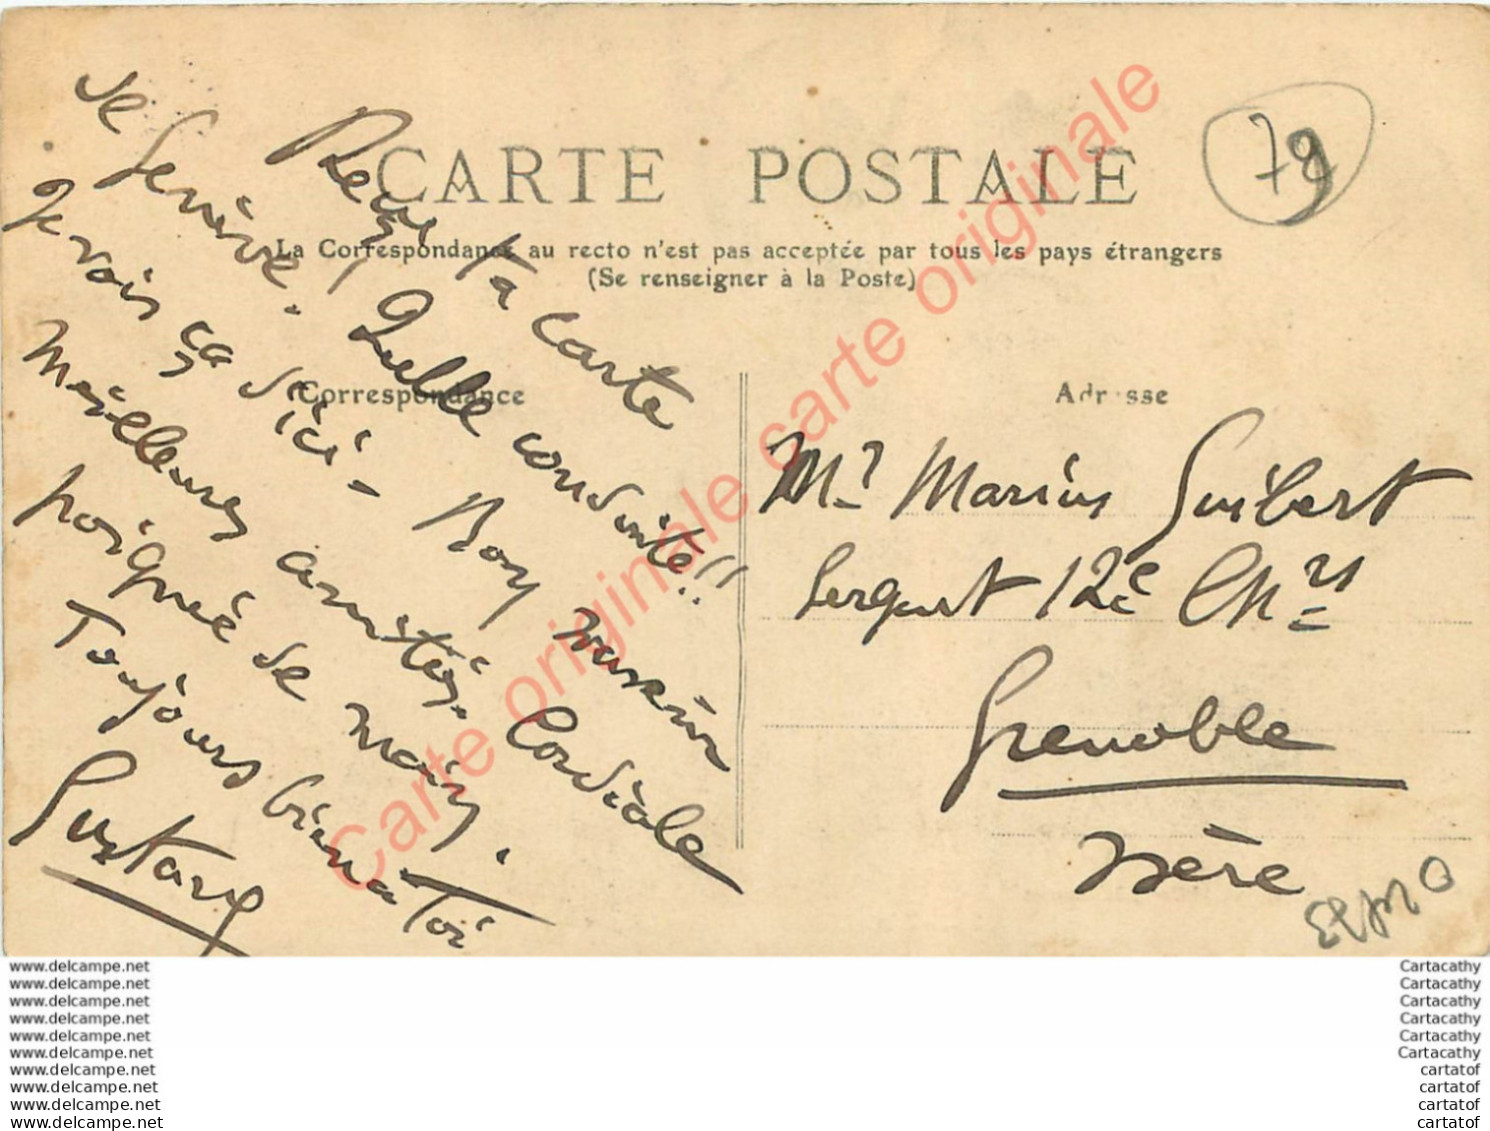 CARTE POSTALE
La Correspondance au recto n'est pas acceptée par tous les pays étrangers
(Se renseigner à la Poste)
Correspondance
Adresse
79
Reçu ta carte
de Genève. Quelle conduite!!
Je vois ça d'ici - Bon
Meilleures amitiés. Cordiale
poignée de main.
Toujours bien à toi
Gustave
Mr. Marius Guibert
Sergent 12e Chrs
Grenoble
Isère
Carte originale carte originale carte originale
www.delcampe.net
www.delcampe.net
www.delcampe.net
www.delcampe.net
www.delcampe.net
www.delcampe.net
www.delcampe.net
www.delcampe.net
www.delcampe.net
www.delcampe.net
Cartacathy
Cartacathy
Cartacathy
Cartacathy
Cartacathy
Cartacathy
cartatof
cartatof
cartatof
cartatof